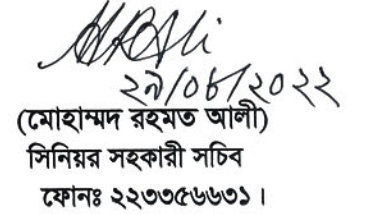 ২৯/০৮/২০২২
(মোহাম্মদ রহমত আলী)
সিনিয়র সহকারী সচিব
ফোনঃ ২২৩৩৫৬৬৩১।